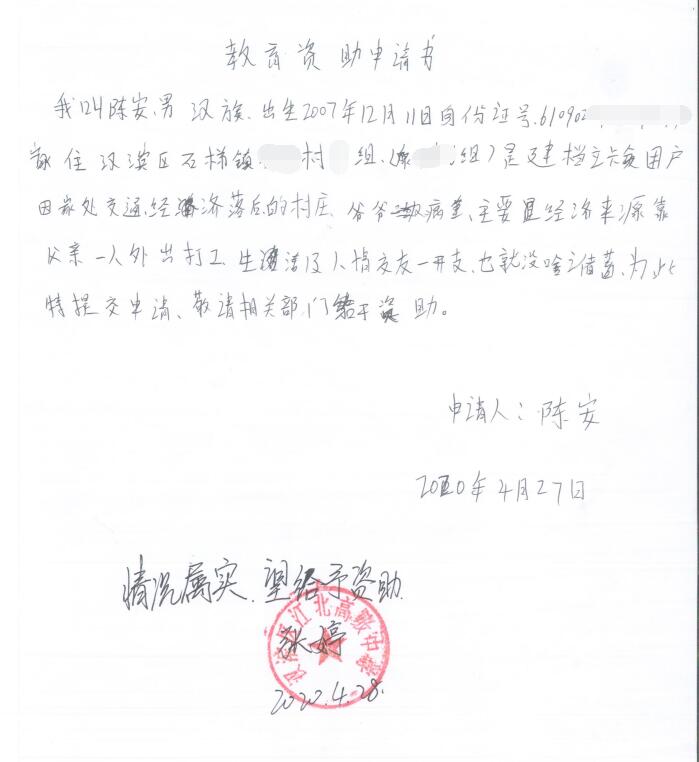 教育资助申请书
我叫陈安.男 汉族.出生2007年12月11日身份证号.610902
家住汉滨区石梯镇 村 组.(原 组)是建档立卡贫困户
因家处交通.经济落后的村庄.爷爷 病重.主要是经济来源靠
父亲一人外出打工.生活及人情交友一开支.也就没啥储蓄.为此
特提交申请、敬请相关部门给于资助。
申请人：陈安
2020年4月27日
情况属实.望给予资助.
汉滨区江北高级中学
张婷
2020.4.28.